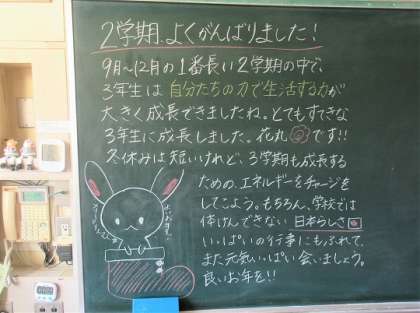 2学期、よくがんばりました！
9月～12月の1番長い2学期の中で、
3年生は自分たちの力で生活する力が
大きく成長できましたね。とてもすてきな
3年生に成長しました。花丸です!!
冬休みは短いけれど、3学期も成長する
ための、エネルギーをチャージを
してこよう。もちろん、学校では
体けんできない日本らしさ
いっぱいの行事にもふれて、
また元気いっぱい会いましょう。
良いお年を!!